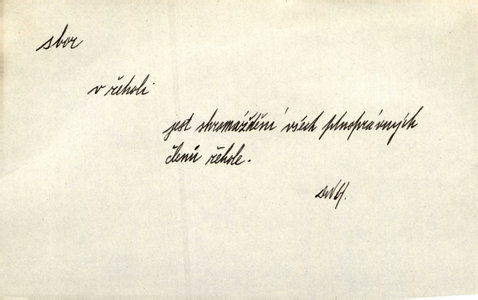 sbor
v řeholi
jest shromáždění všech plnoprávných
členů řehole.